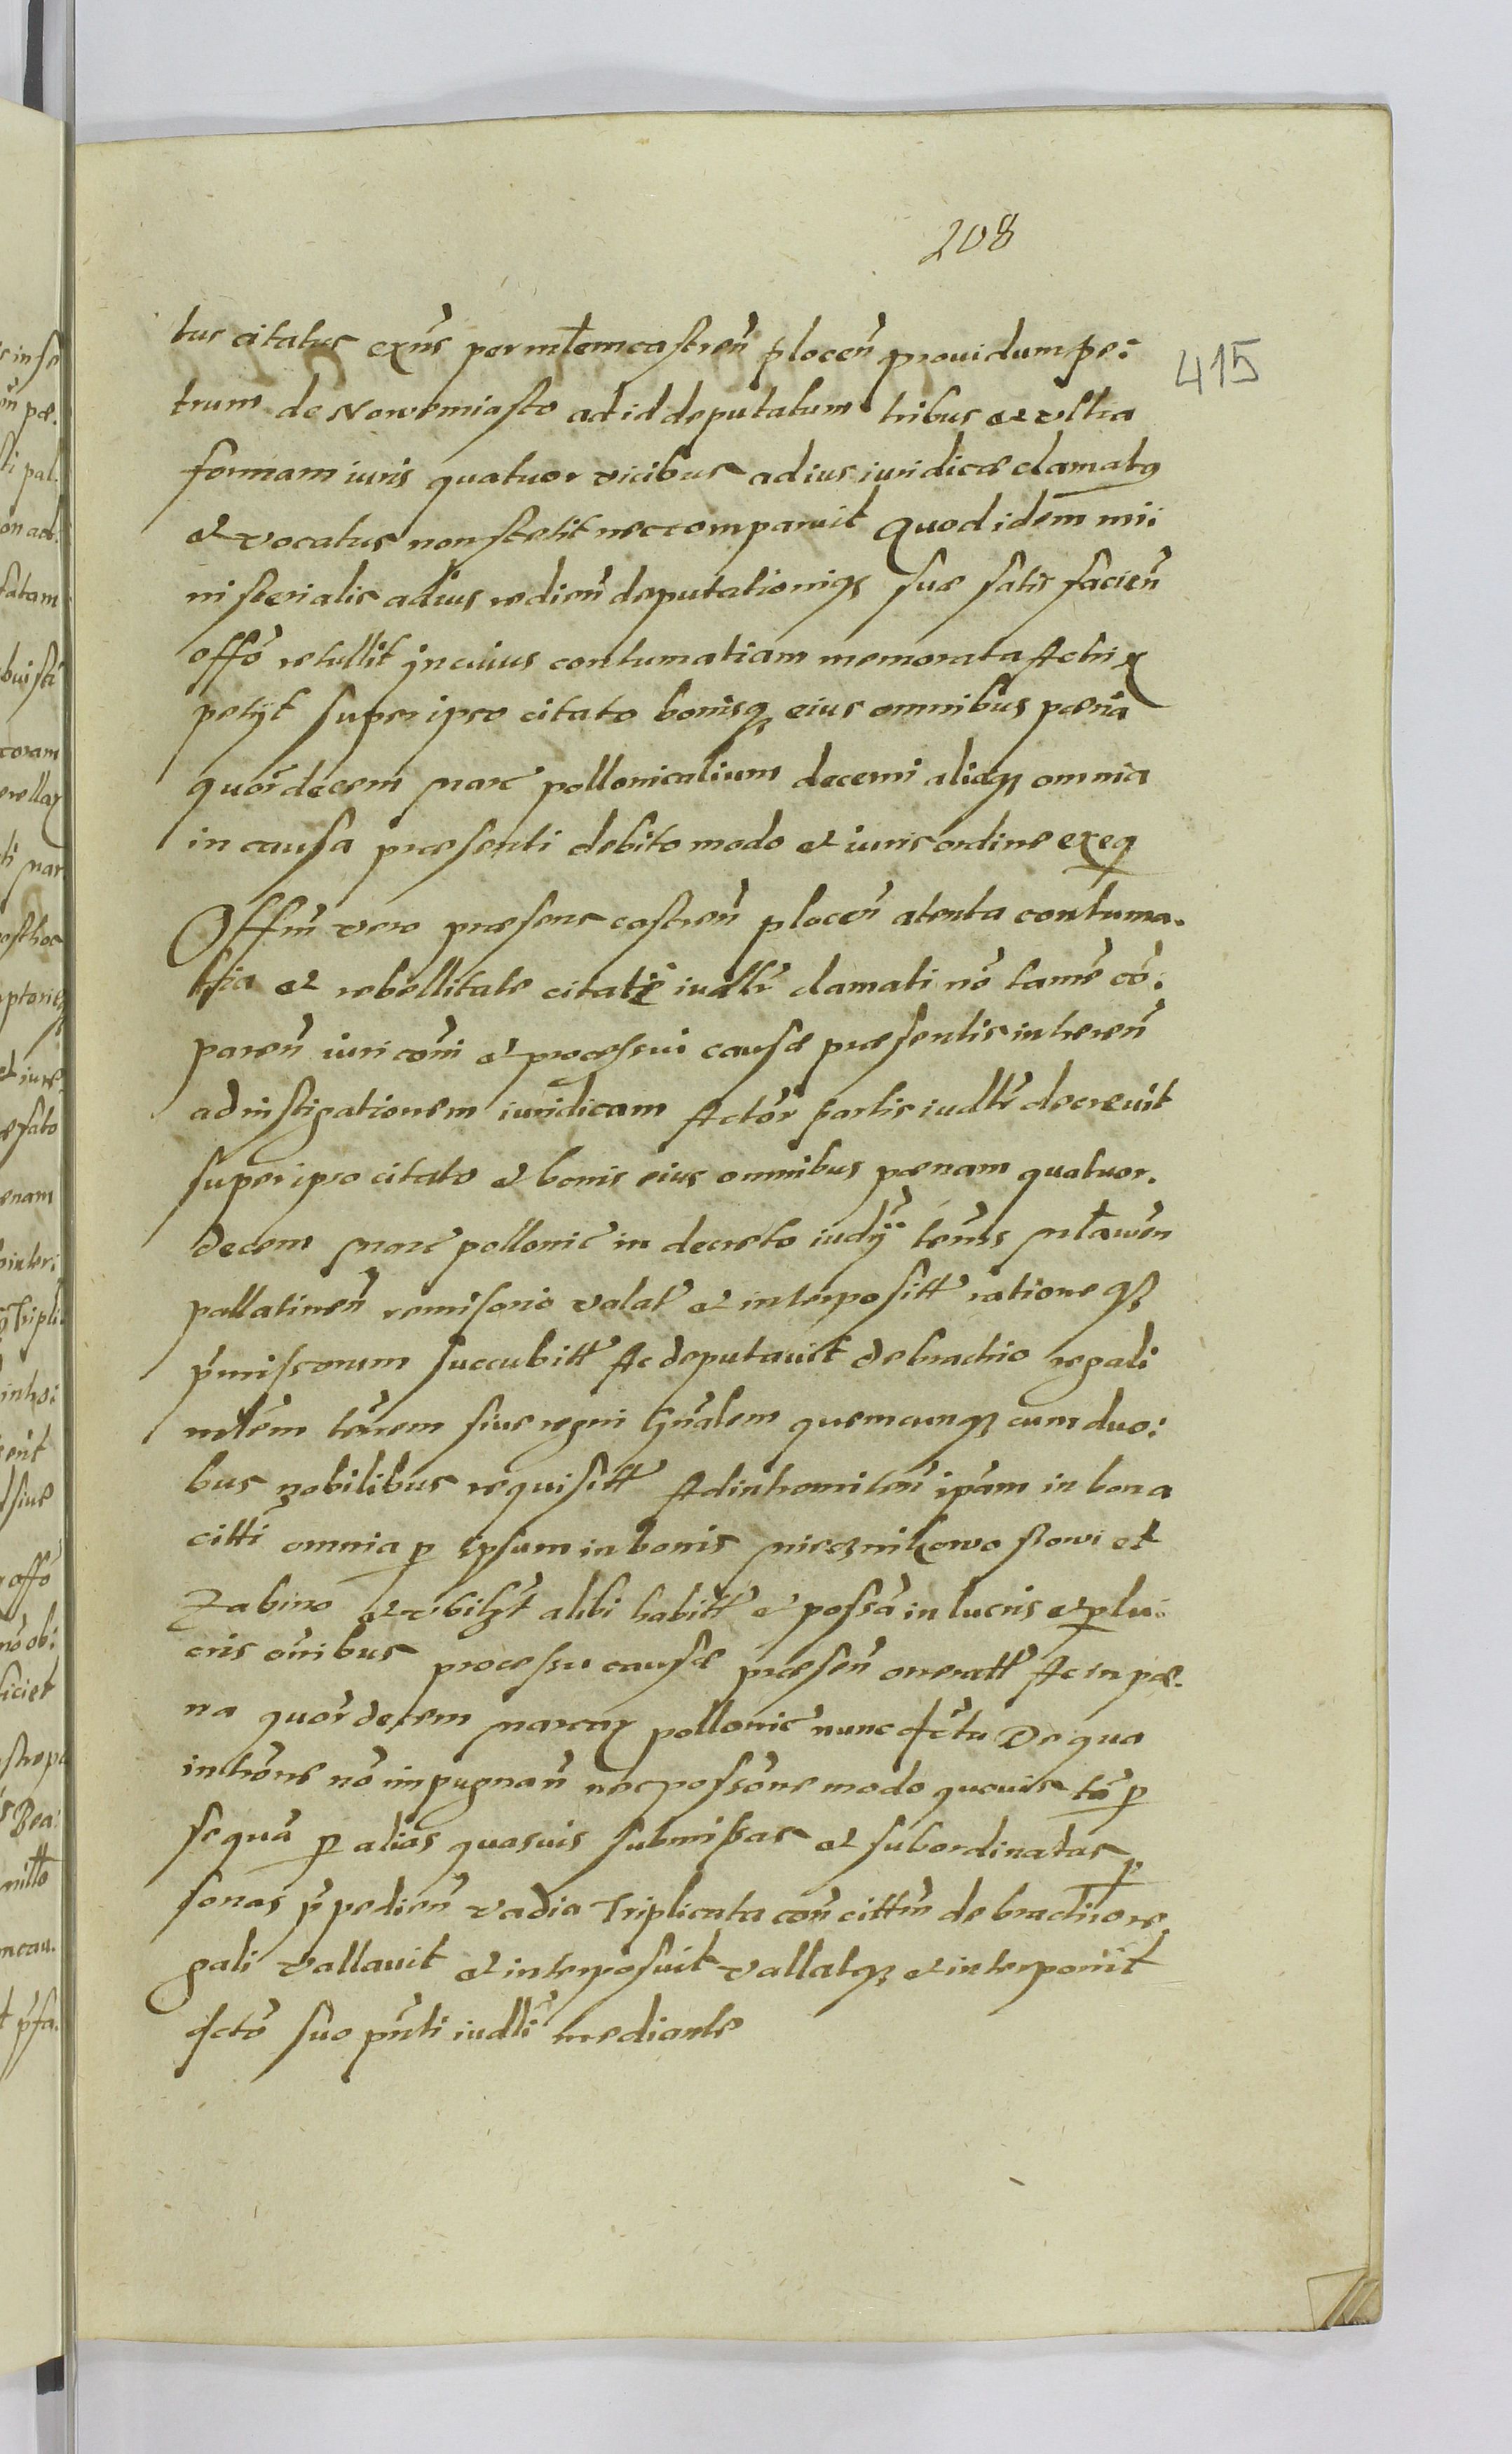 208
415
tus citatus exñs per mlem castreñ ploceñ prouidum pe:
trum de Nowemiasto ad id deputatum tribus et vltra
formam iuris quatuor vicibus ad ius iuridicæ clamatq
et vocatus non stetit nec comparuit Quod idem mi:
nisterialis ad ius redieñ deputationiq suæ satis facieñ
offõ retullit In cuius contumatiam memorata Actrix
petijt super ipso citato bonisq eius omnibus pœnã
quordecem marc pollonicalium decerni aliaq omnia
in causa præsenti debito modo et iuris ordine exeq
Offm vero præsens castreñ ploceñ atenta contuma.
tia et rebellitate citati iudlr clamati nõ tamẽ cõ:
pareñ iuri cõni et processui causæ præsentis inhereñ
ad instigationem iuridicam Actor partis iudlr decrevit
super ipso citato et bonis eius omnibus pœnam quatuor.
decem marc pollonic in decreto iudij terris mlawen
pallatineñ remisorio valat et interposit rationeq
pmissorum succubitt Ac deputauit de brachio regali
mlem terrem siue regni Gnalem quemcunq cum duo:
bus nobilibus requisitt Ad intromitteñ ipam in bona
citti omnia p ipsum in bonis niecznikowo rowi et
Zabino et vbilzt alibi habitt et possã in lucris et plu:
cris oĩbus processu causæ præseñ oneratt Ac in pœ.
na quordecem marcar pollonic nunc dctu De qua
intrõne nõ impugnañ nec possõne modo quouis tã p
se quã p alias quasuis submissas et subordinatas p
sonas p̃pedieñ vadia Triplicata coñ cittm de brachio re
gali vallauit et interposuit vallatq et interponit
dctõ suo pñti iudlr mediante